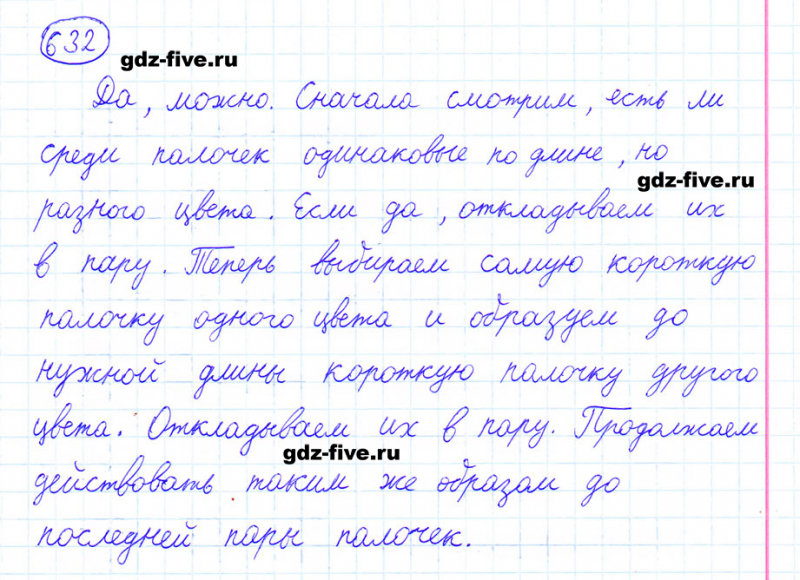 632
gdz-five.ru
Да, можно. Сначала смотрим, есть ли
среди палочек одинаковые по длине, но
gdz-five.ru
разного цвета. Если да, откладываем их
в пару. Теперь выбираем самую короткую
палочку одного цвета и образуем до
нужной длины короткую палочку другого
цвета. Откладываем их в пару. Продолжаем
gdz-five.ru
действовать таким же образом до
последней пары палочек.